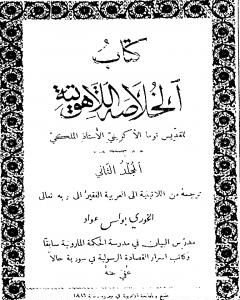 كتاب
الخلاصة اللاهوتية
للقديس توما الاكويني الاستاذ الملكي
المجلد الثاني
ترجمهُ من اللاتينية الى العربية الفقير الى ربهِ تعالى
الخوري بولس عواد
مدرّس البيان في مدرسة الحكمة المارونية سابقًا
وكاتب اسرار القصادة الرسولية في سورية حالاً
عُفي عنهُ